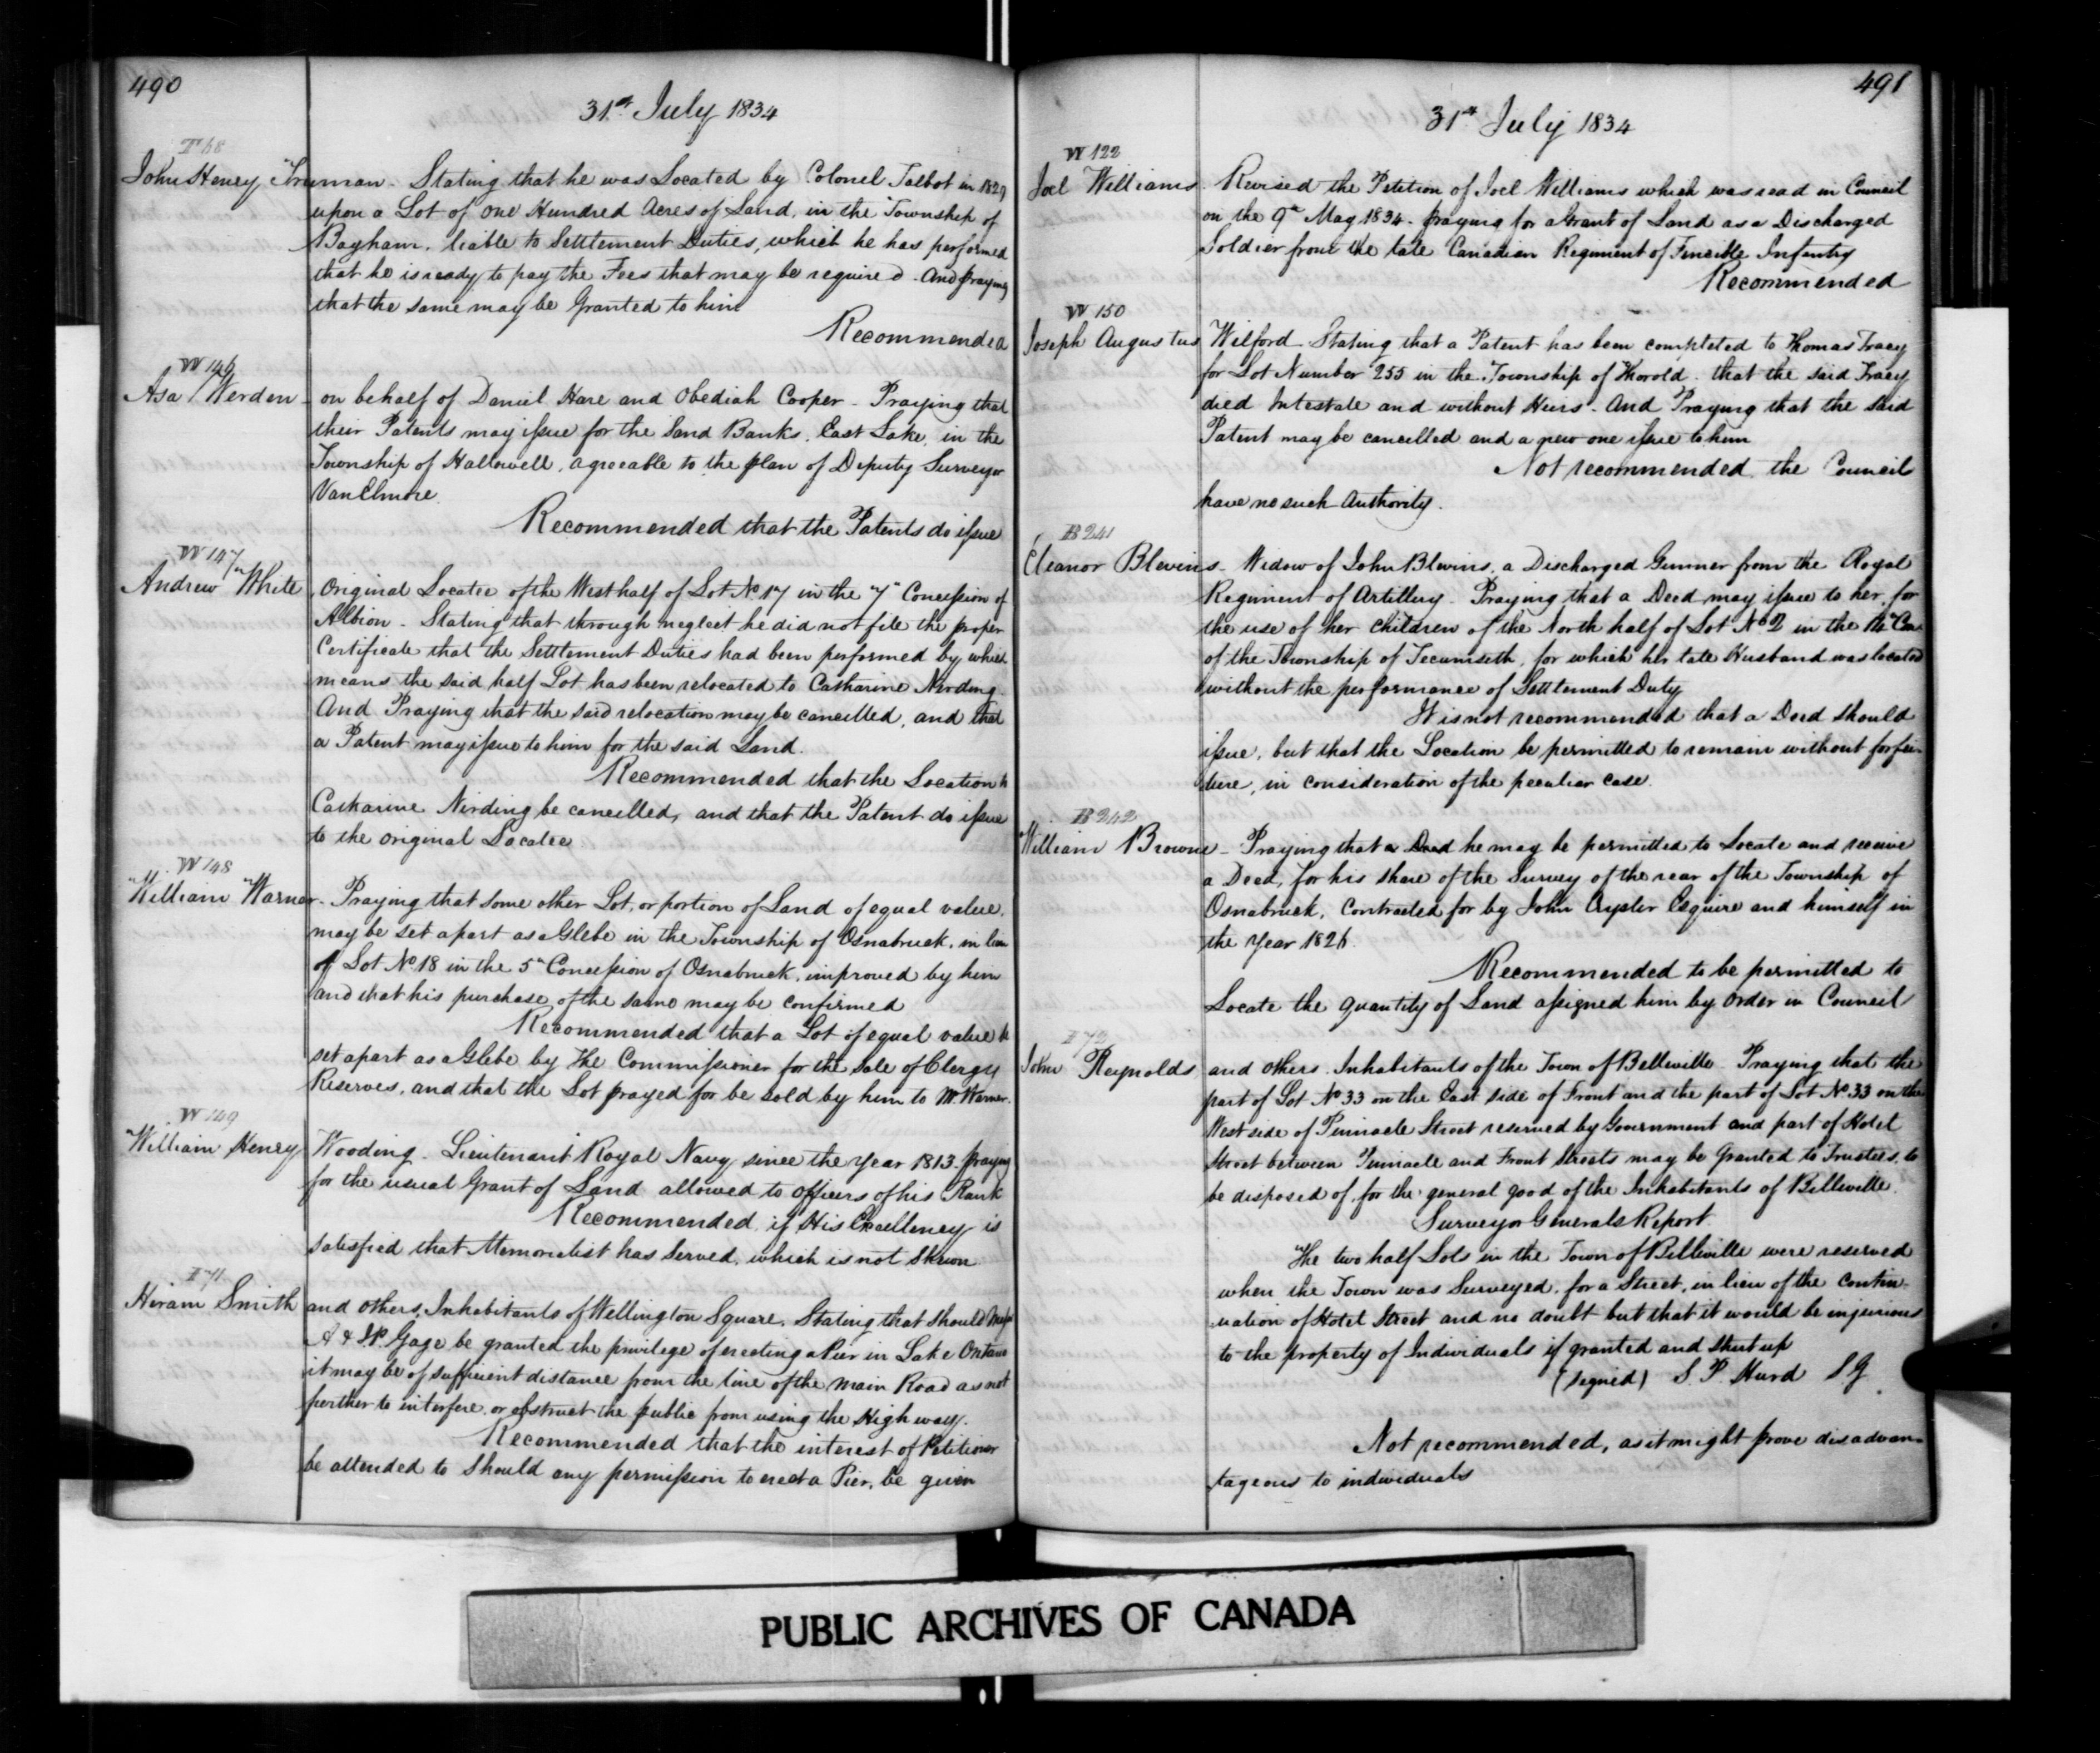 490
31st July 1834
T 68
John Henry Truman - Stating that he was Located by Colonel Talbot in 1829
upon a Lot of One Hundred Acres of Land, in the Township of
Bayham, liable to Settlement Duties, which he has performed
that he is ready to pay the Fees that may be required. And praying
that the same may be Granted to him
Recommended
W 146
Asa Werden - on behalf of Daniel Hare and Obediah Cooper - Praying that
their Patents may issue for the Sand Banks, East Lake, in the
Township of Hallowell, agreeable to the plan of Deputy Surveyor
VanElmore.
Recommended that the Patents do issue
W 147
Andrew White, Original Locatee of the West half of Lot No. 17 in the 7th Concession of
Albion - Stating that through neglect he did not file the proper
Certificate that the Settlement Duties had been performed by which
means the said half Lot has been relocated to Catharine Nirding
And Praying that the said relocation may be cancelled, and that
a Patent may issue to him for the said Land.
Recommended that the Location to
Catharine Nirding be cancelled, and that the Patent do issue
to the original Locatee
W 148
William Warner - Praying that some other Lot, or portion of Land of equal value,
may be set apart as a Glebe in the Township of Osnabruck, in lieu
of Lot No 18 in the 5th Concession of Osnabruck, improved by him
and that his purchase of the same may be confirmed
Recommended that a Lot of equal value be
set apart as a Glebe by the Commissioner for the sale of Clergy
Reserves, and that the Lot prayed for be sold by him to Mr. Warner.
W 149
William Henry Wooding - Lieutenant Royal Navy since the Year 1813. praying
for the usual Grant of Land allowed to Officers of his Rank
Recommended, if His Excellency is
satisfied that Memorialist has Served, which is not Shewn
I 71
Hiram Smith and others, Inhabitants of Wellington Square, Stating that should Messrs
A & J.P. Gage be granted the privilege of erecting a Pier in Lake Ontario
it may be of sufficient distance from the line of the main Road as not
further to interfere or obstruct the public from using the High way.
Recommended that the interest of Petitioner
be attended to should any permission to erect a Pier, be given
491
31st July 1834
W 122
Joel Williams. Revised the Petition of Joel Williams which was read in Council
on the 9th May 1834. praying for a Grant of Land as a Discharged
Soldier from the late Canadian Regiment of Fencible Infantry
Recommended
W 150
Joseph Augustus Wilford - Stating that a Patent has been completed to Thomas Tracy
for Lot Number 255 in the Township of Thorold. that the said Tracy
died Intestate and without Heirs - And Praying that the said
Patent may be cancelled and a new one issue to him
Not recommended. the Council
have no such Authority.
B 241
Eleanor Blevins - Widow of John Blevins, a Discharged Gunner from the Royal
Regiment of Artillery - Praying that a Deed may issue to her, for
the use of her children of the North half of Lot No 2 in the 14th Con
of the Township of Tecumseth, for which her late Husband was located
without the performance of Settlement Duty
It is not recommended that a Deed should
issue, but that the Location be permitted to remain without forfei-
ture, in consideration of the peculiar case.
B 242
William Browne - Praying that a Deed he may be permitted to Locate and receive
a Deed, for his share of the Survey of the rear of the Township of
Osnabruck, Contracted for by John Crysler Esquire and himself in
the Year 1826
Recommended to be permitted to
Locate the quantity of Land assigned him by Order in Council
I 72
John Reynolds and others. Inhabitants of the Town of Belleville - Praying that the
part of Lot No 33 on the East side of Front and the part of Lot No. 33 on the
West side of Pinnacle Street reserved by Government and part of Hotel
Street between Pinnacle and Front Streets may be Granted to Trustees, to
be disposed of, for the general good of the Inhabitants of Belleville.
Surveyor Generals Report.
The two half Lots in the Town of Belleville were reserved
when the Town was Surveyed, for a Street, in lieu of the contin-
uation of Hotel Street and no doubt but that it would be injurious
to the property of Individuals if granted and Shut up
(signed) S. P. Hurd S G
Not recommended, as it might prove disadvan-
tageous to individuals
PUBLIC ARCHIVES OF CANADA